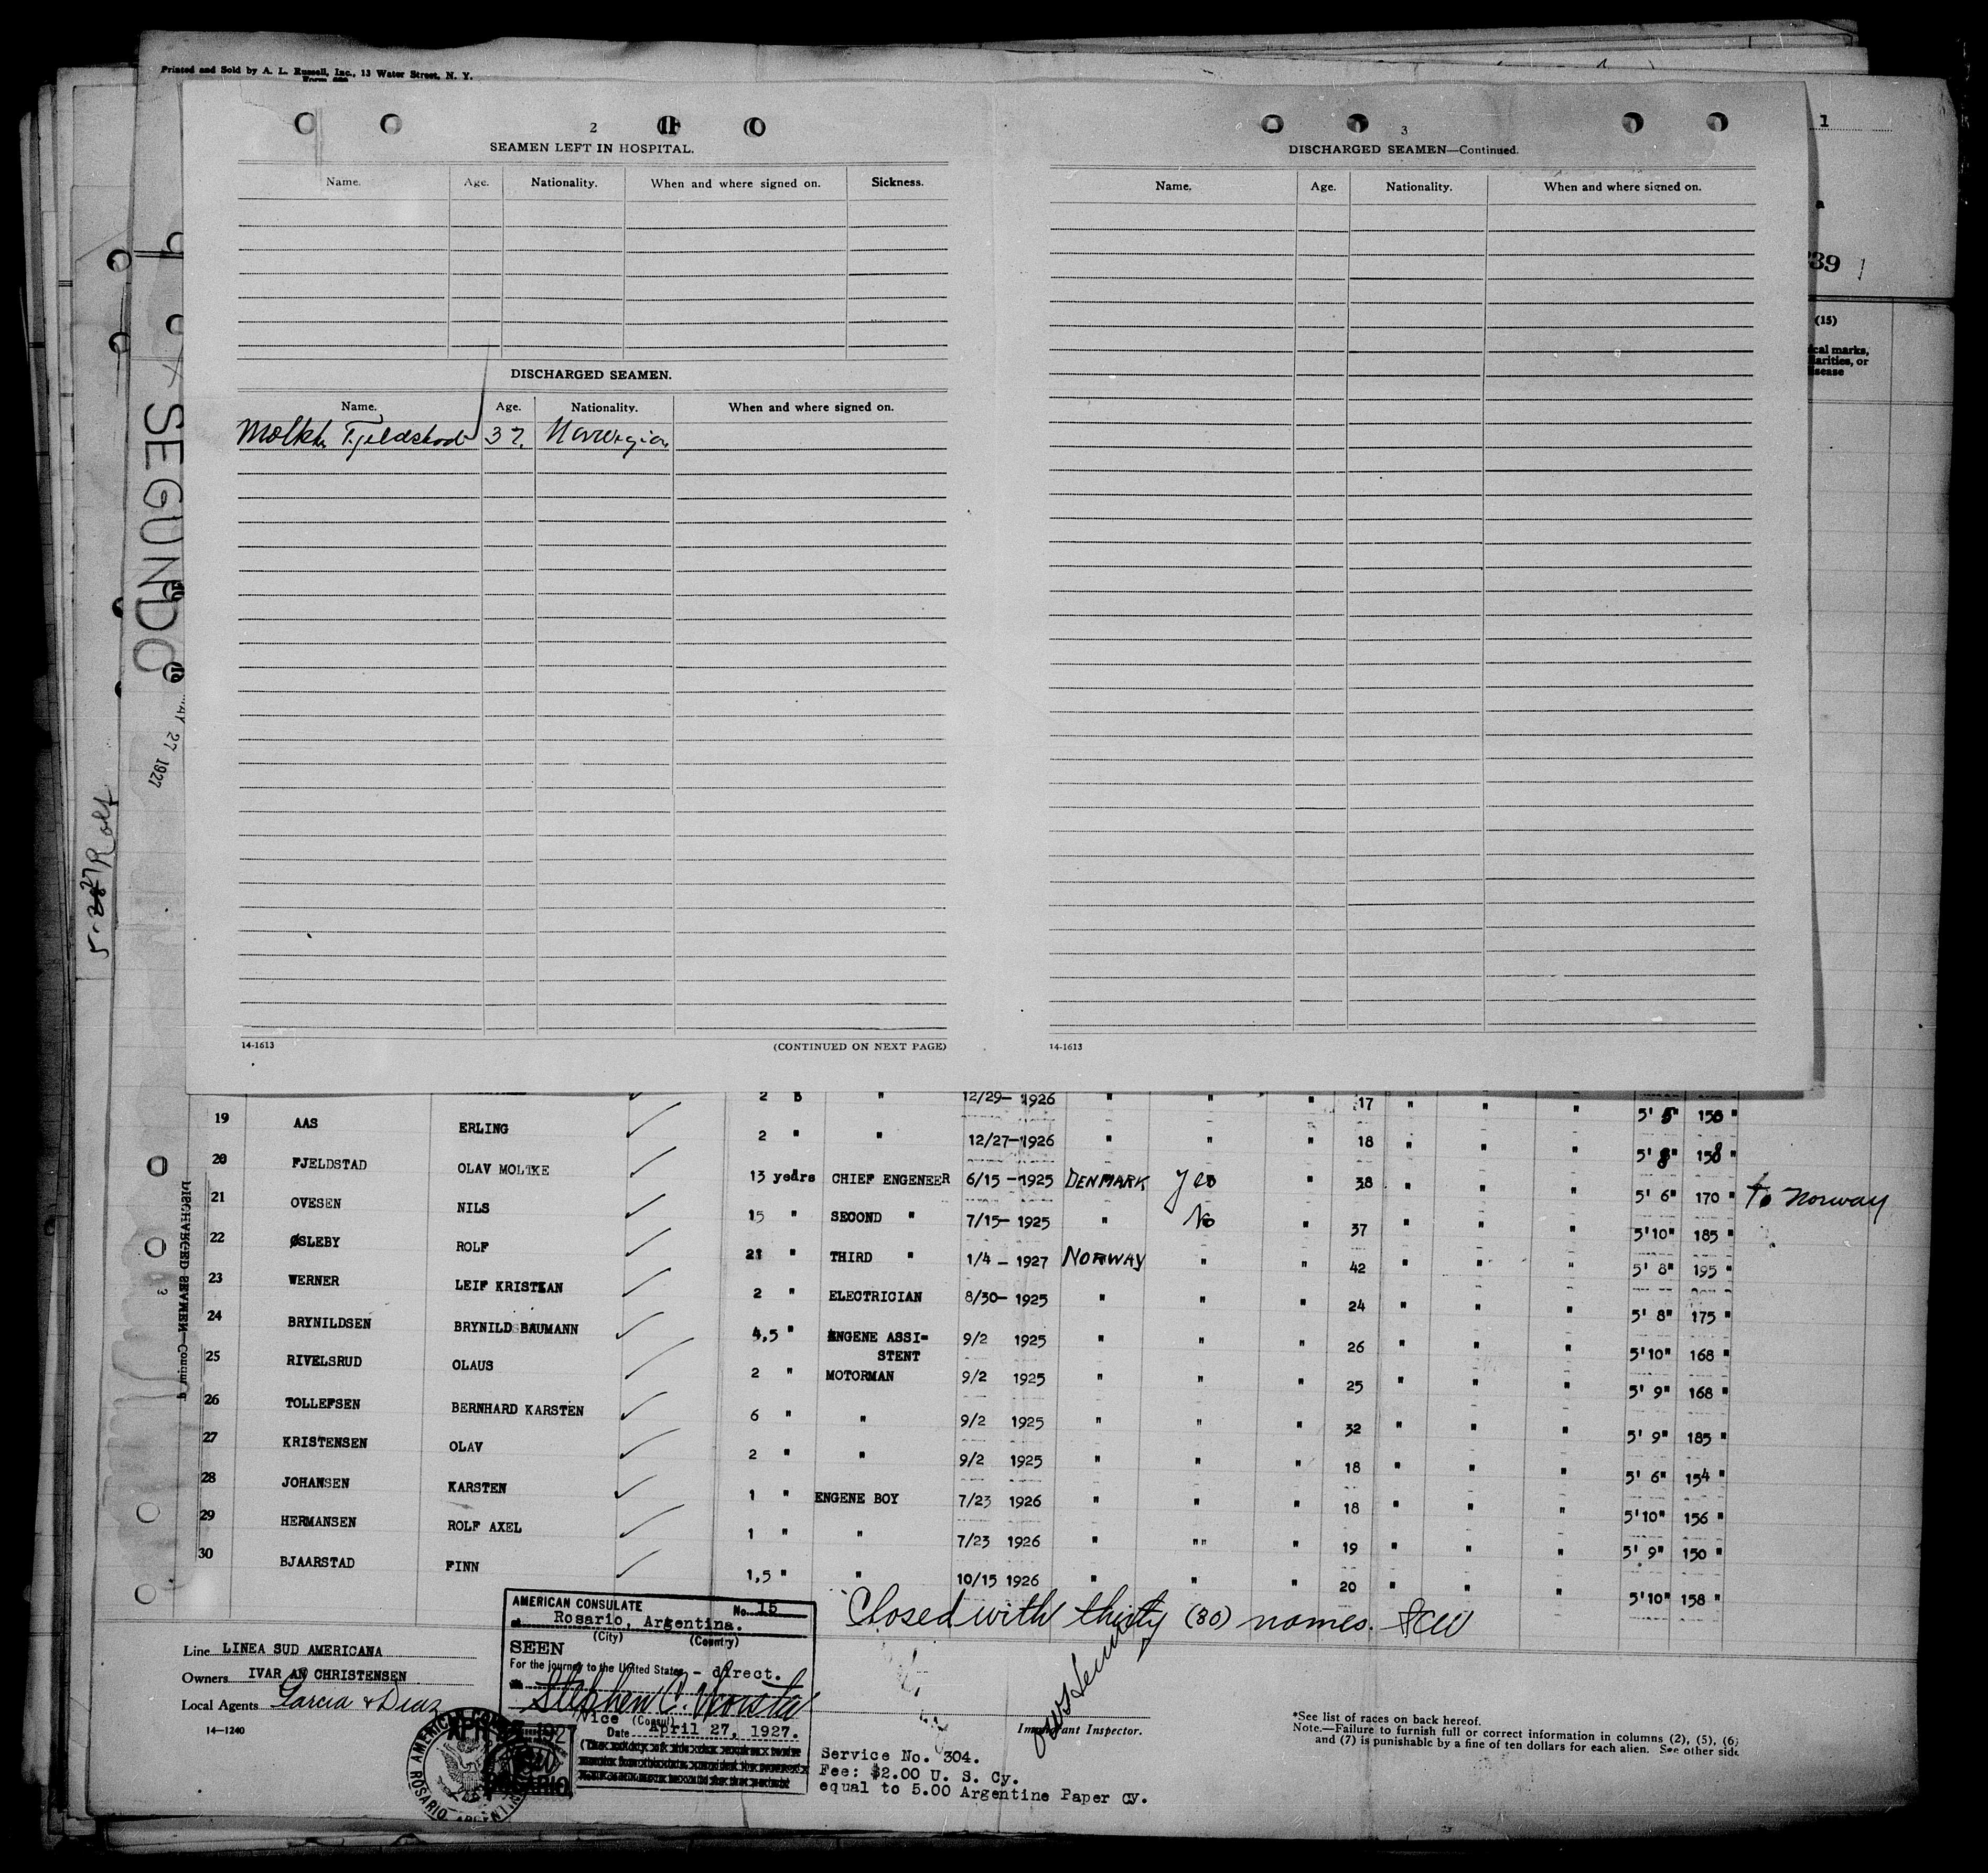 Printed and Sold by A. L. Russell, Inc., 13 Water Street, N. Y.
2
SEAMEN LEFT IN HOSPITAL.
Name. Age. Nationality. When and where signed on. Sickness.
DISCHARGED SEAMEN.
Name. Age. Nationality. When and where signed on.
Fjeldstad 37. Norwegian
14-1613 (CONTINUED ON NEXT PAGE)
3
DISCHARGED SEAMEN—Continued.
Name. Age. Nationality. When and where signed on.
14-1613
1
39
(15)
SEGUNDO
27 1927
5- 27 Rolf
DISCHARGED SEAMEN—
2 " " 12/29- 1926 " " " 17 " " " 5' 5" 150 "
19 AAS ERLING 2 " " 12/27-1926 " " " 18 " " " 5' 8" 158 "
20 FJELDSTAD OLAV MOLTKE 13 years CHIEF ENGENEER 6/15-1925 DENMARK Yes " 38 " " " 5' 6" 170 " to Norway
21 OVESEN NILS 15 " SECOND " 7/15- 1925 " No " 37 " " " 5'10" 185 "
22 ØSLEBY ROLF 21 " THIRD " 1/4 - 1927 NORWAY " " 42 " " " 5' 8" 195 "
23 WERNER LEIF KRISTIAN 2 " ELECTRICIAN 8/30- 1925 " " " 24 " " " 5' 8" 175 "
24 BRYNILDSEN BRYNILD BAUMANN 4,5 " ENGENE ASSI=
STENT 9/2 1925 " " " 26 " " " 5'10" 168 "
25 RIVELSRUD OLAUS 2 " MOTORMAN 9/2 1925 " " " 25 " " " 5' 9" 168 "
26 TOLLEFSEN BERNHARD KARSTEN 6 " " 9/2 1925 " " " 32 " " " 5' 9" 185 "
27 KRISTENSEN OLAV 2 " " 9/2 1925 " " " 18 " " " 5' 6" 154 "
28 JOHANSEN KARSTEN 1 " ENGENE BOY 7/23 1926 " " " 18 " " " 5'10" 156 "
29 HERMANSEN ROLF AXEL 1 " " 7/23 1926 " "" " 19 " " " 5' 9" 150 "
30 BJAARSTAD FINN 1,5 " " 10/15 1926 " " " 20 " " " 5'10" 158 "
Closed with thirty (30) names. SCW
AMERICAN CONSULATE No. 15
at Rosario, Argentina.
(City) (Country)
SEEN
For the journey to the United States - direct.
Stephen C. Worster
Vice (Consul)
Date April 27, 1927.
Line LINEA SUD AMERICANA
Owners IVAR AN CHRISTENSEN
Local Agents Garcia & Diaz
14-1240
AMERICAN
ROSARIO
1927
Service No. 304.
Fee: $2.00 U. S. Cy.
equal to 5.00 Argentine Paper cy.
Immigrant Inspector.
*See list of races on back hereof.
Note.—Failure to furnish full or correct information in columns (2), (5), (6)
and (7) is punishable by a fine of ten dollars for each alien. See other side